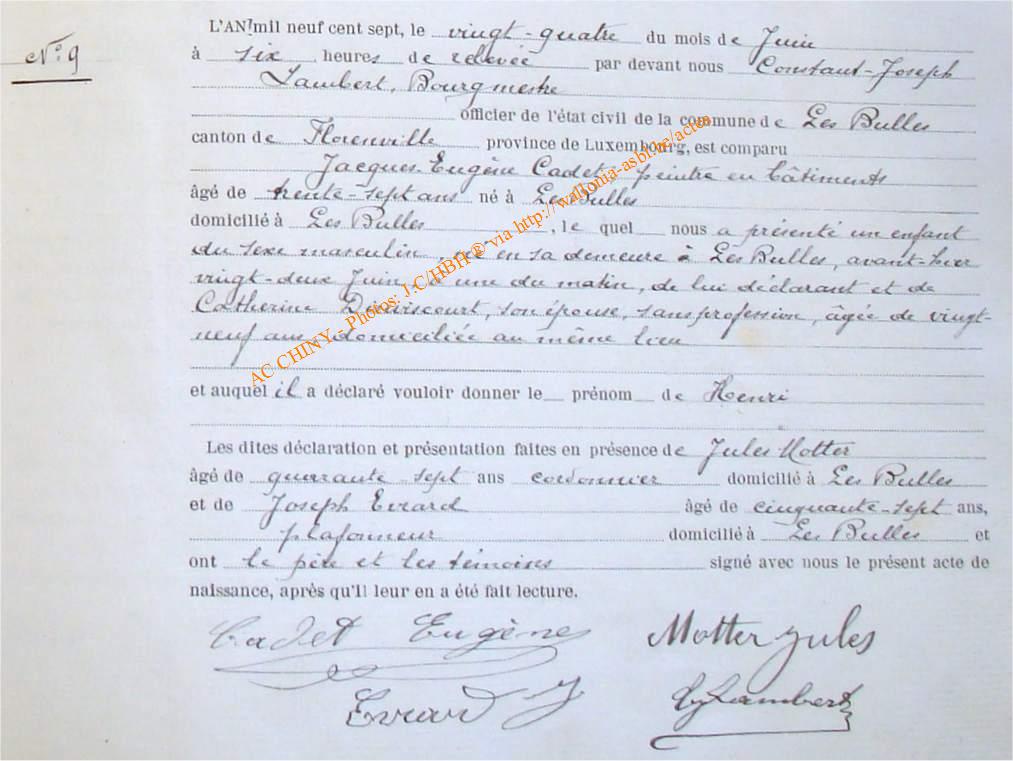 N° 9
L'AN mil neuf cent sept, le vingt-quatre du mois de Juin
à six heures de relevée par devant nous Constant-Joseph
Lambert, Bourgmestre
officier de l'état civil de la commune de Les Bulles
canton de Florenville province de Luxembourg, est comparu
Jacques Eugène Cadet, peintre en bâtiments
âgé de trente-sept ans né à Les Bulles
domicilié à Les Bulles, lequel nous a présenté un enfant
du sexe masculin, né en sa demeure à Les Bulles, avant-hier
vingt-deux Juin à une du matin, de lui déclarant et de
Catherine son épouse, sans profession, âgée de vingt-
neuf ans domiciliée au même lieu
et auquel il a déclaré vouloir donner le prénom de Henri
Les dites déclaration et présentation faites en présence de Jules Motter
âgé de quarante sept ans cordonnier domicilié à Les Bulles
et de Joseph Evrard âgé de cinquante-sept ans,
plafonneur domicilié à Les Bulles et
ont le père et les témoins signé avec nous le présent acte de
naissance, après qu'il leur en a été fait lecture.
Cadet Eugène Motter Jules
Evrard J CJLambert
AC CHINY - Photos: J.C/HBH ® via http://wallonia-asbl.be/actes